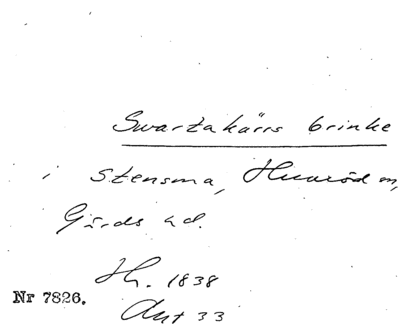 Swartakärrs brinke
i Stensma, Huaröd sn,
Gärds hd.
Hh. 1838
Nr 7826.
Akt 33